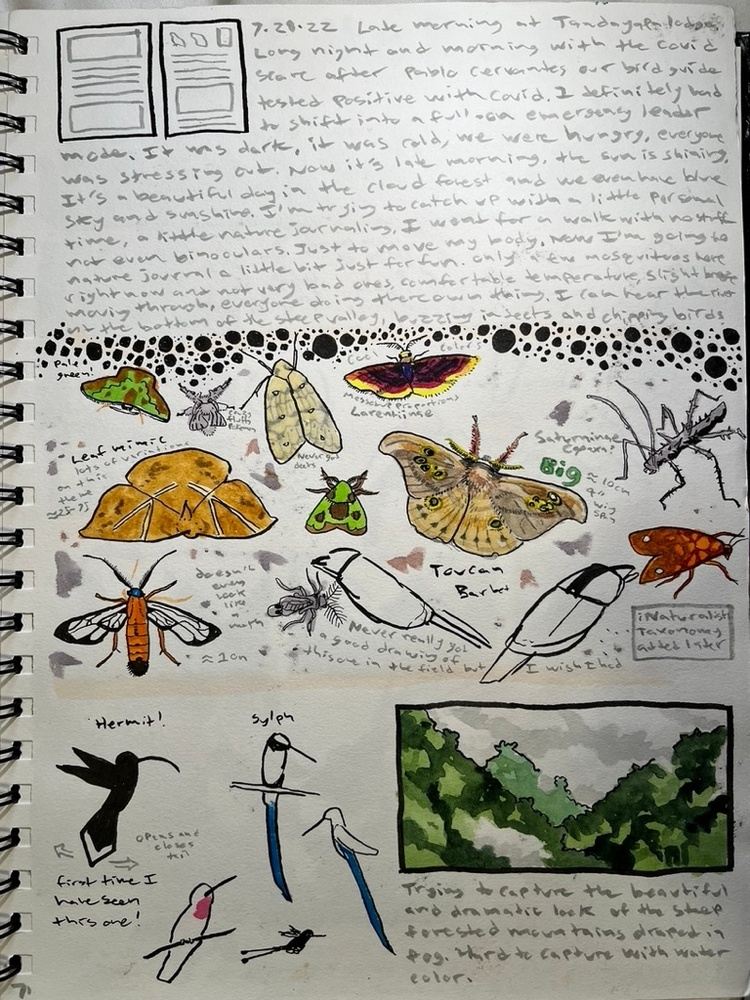 7.20.22 Late morning at Tandayapa lodge.
Long night and morning with the covid
scare after pablo cervantes our bird guide
tested positive with covid. I definitely had
to shift into a full on emergency leader
mode. It was dark, it was cold, we were hungry, everyone
was stressing out. Now it's late morning, the sun is shining,
It's a beautiful day in the cloud forest and we even have blue
sky and sunshine. I'm trying to catch up with a little personal
time, a little nature journaling, I went for a walk with no stuff
not even binoculars. Just to move my body. Now I'm going to
nature journal a little bit just for fun. Only a few mosquitoes here
right now and not very bad ones, comfortable temperature, slight breeze
moving through, everyone doing there own thing. I can hear the river
in the bottom of the steep valley, buzzing insects and chipping birds
green!
Cool colors
Larentiinae
Leaf mimic
lots of variations
on this
theme
Never got
Saturniinae
Big ≈10cm
doesn't
even
look
like
a
moth
≈1cm
Toucan
Barbet
Never really got
a good drawing of
this one in the field but I wish I had
iNaturalist
Taxonomy
added later
Hermit!
Sylph
opens and
closes
tail
first time I
have seen
this one!
Trying to capture the beautiful
and dramatic look of the steep
forested mountains draped in
fog. Hard to capture with water
color.